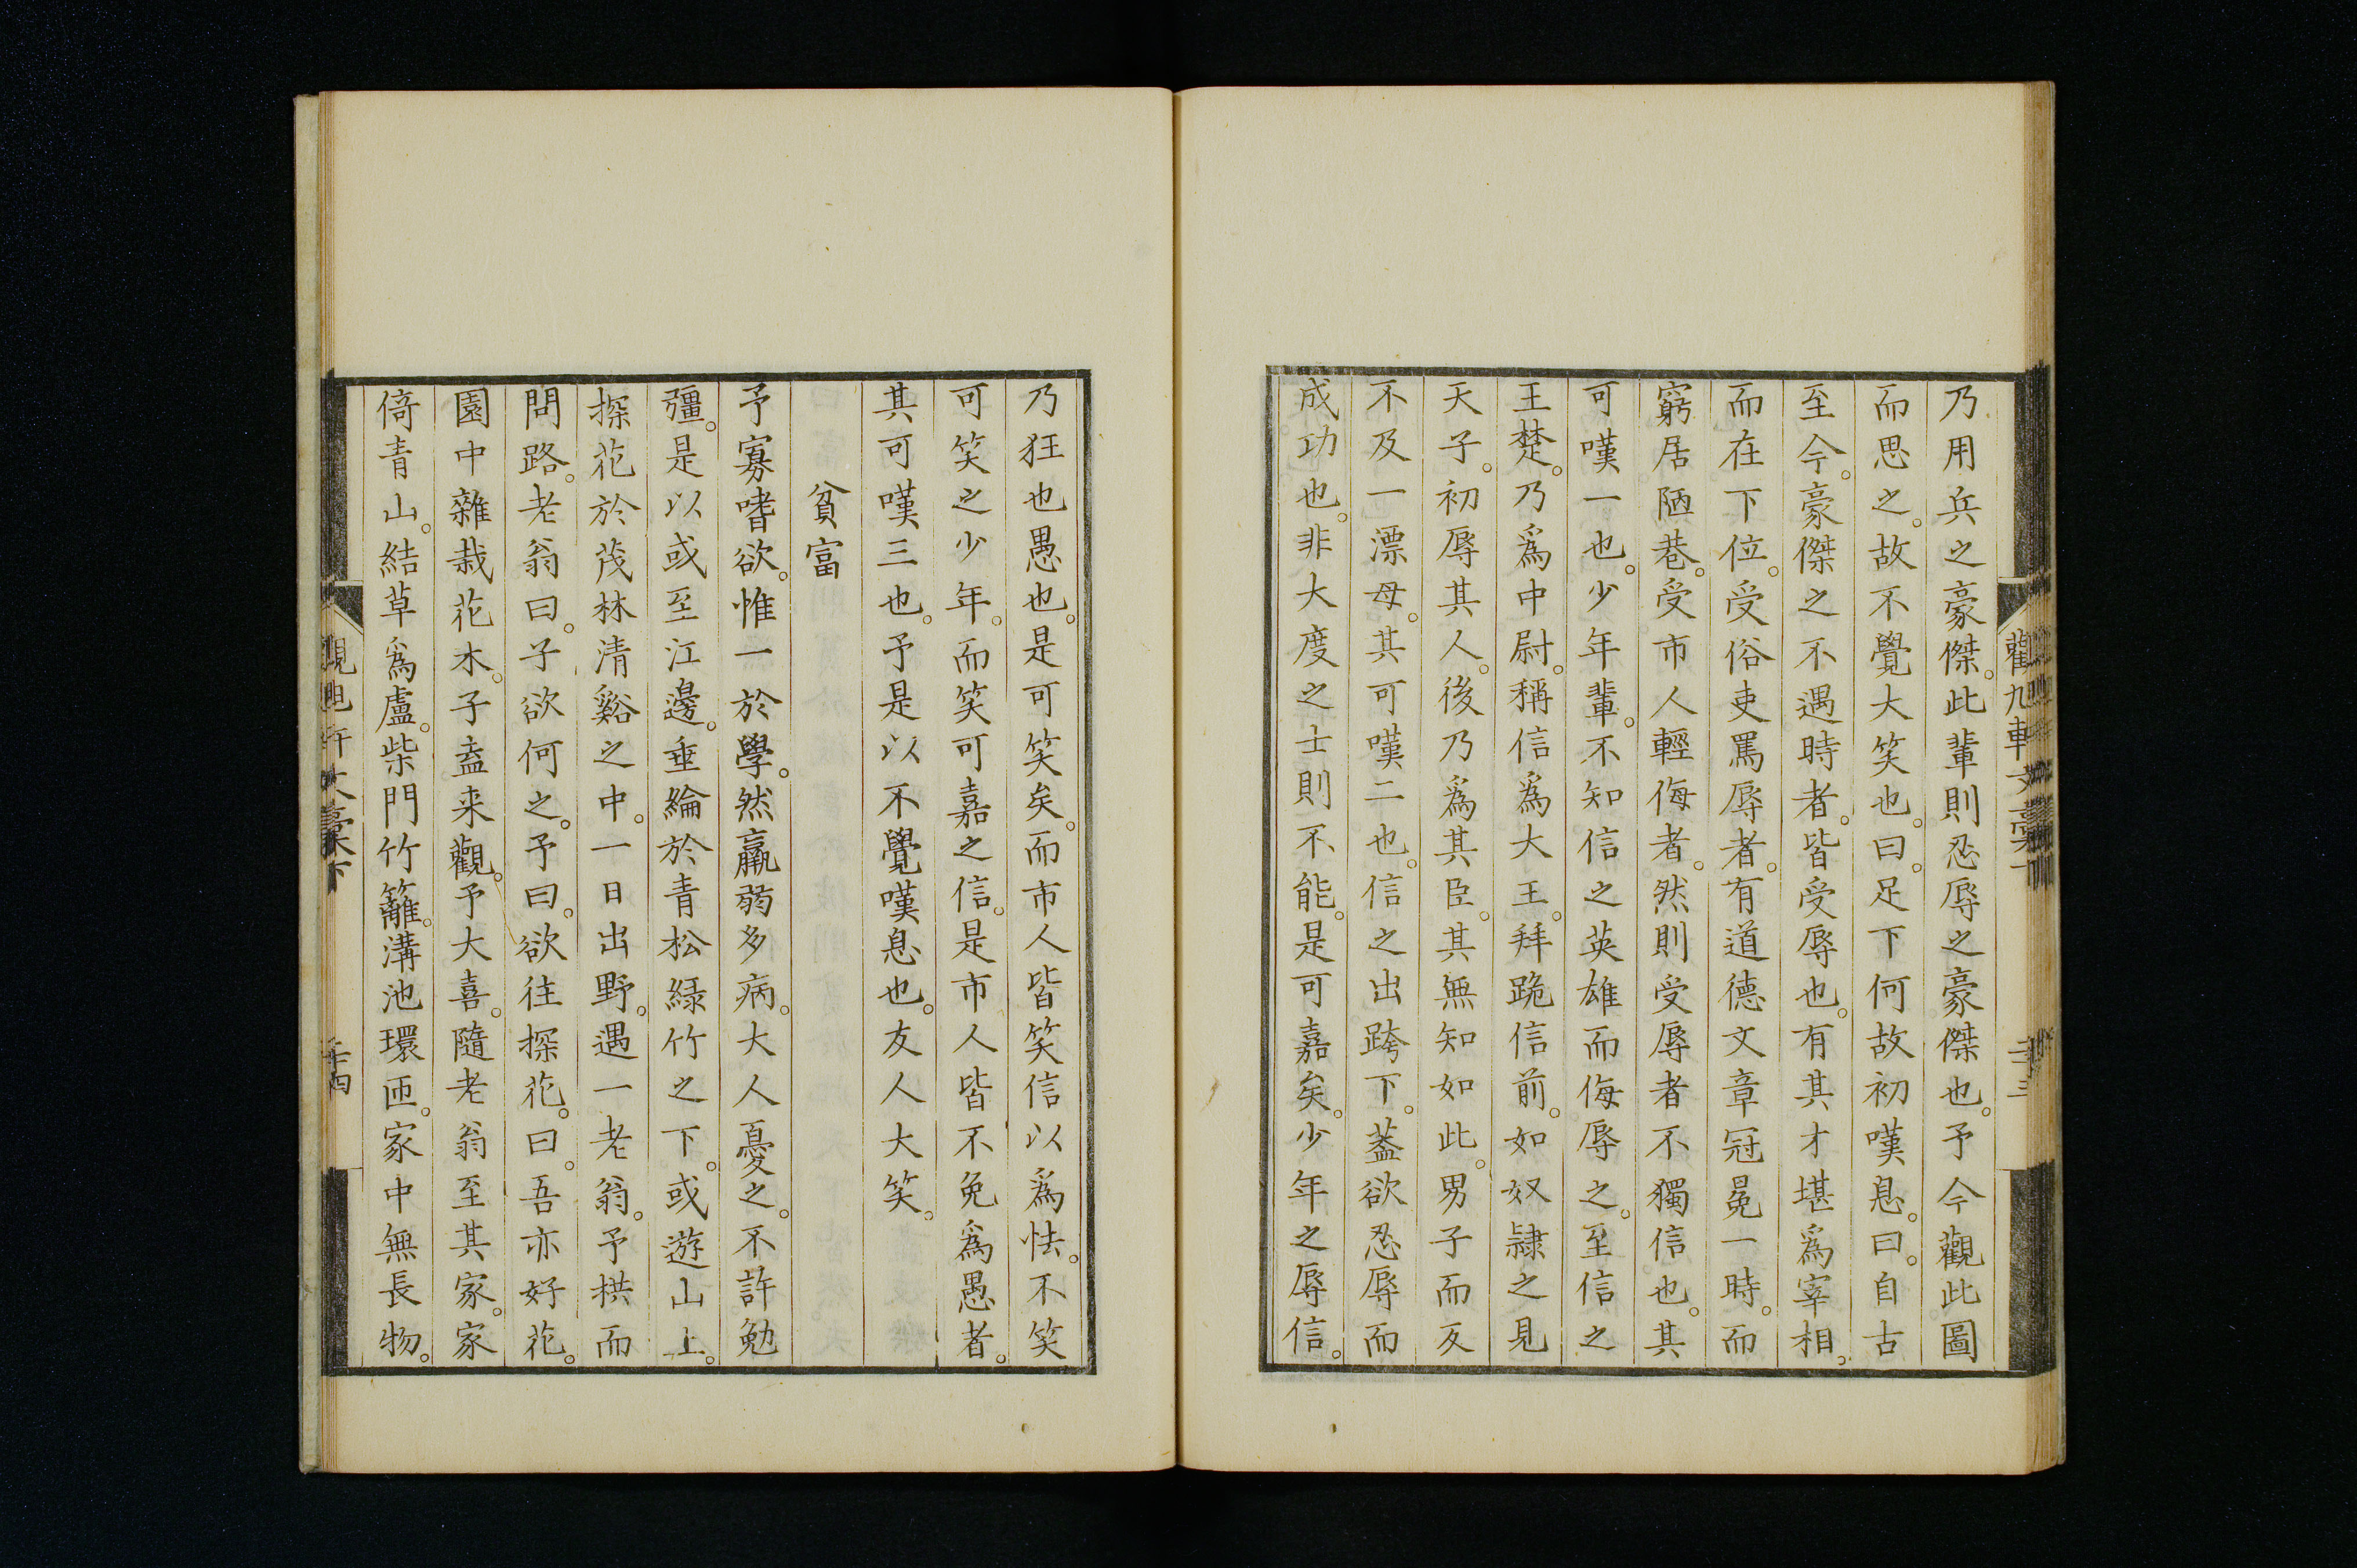 乃用兵之豪傑。此輩則忍辱之豪傑也。予今觀此圖
而思之。故不覺大笑也。曰。足下何故初嘆息。曰。自古
至今。豪傑之不遇時者。皆受辱也。有其才堪爲宰相。
而在下位。受俗吏罵辱者。有道德文章冠冕一時。而
窮居陋巷。受市人輕侮者。然則受辱者不獨信也。其
可嘆一也。少年輩。不知信之英雄而侮辱之。至信之
王楚。乃爲中尉。稱信爲大王。拜跪信前。如奴隷之見
天子。初辱其人。後乃爲其臣。其無知如此。男子而反
不及一漂母。其可嘆二也。信之出跨下。蓋欲忍辱而
成功也。非大度之士則不能。是可嘉矣。少年之辱信。
乃狂也愚也。是可笑矣。而市人皆笑信以爲怯。不笑
可笑之少年。而笑可嘉之信。是市人皆不免爲愚者。
其可嘆三也。予是以不覺嘆息也。友人大笑。
貧富
予寡嗜欲。惟一於學。然羸弱多病。大人憂之。不許勉
彊。是以或至江邊。垂綸於青松緑竹之下。或遊山上。
探花於茂林清谿之中。一日出野。遇一老翁。予拱而
問路。老翁曰。子欲何之。予曰。欲往探花。曰。吾亦好花。
園中雜栽花木。子盍来觀。予大喜。隨老翁至其家。家
倚青山。結草爲廬。柴門竹籬。溝池環匝。家中無長物。